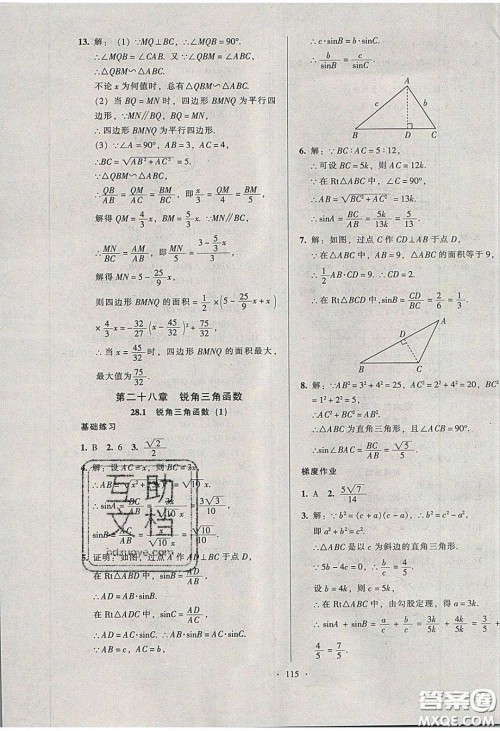 13. 解：(1) ∵MQ⊥BC，∴∠MQB=90°.
∴∠MQB=∠CAB. 又∠QBM=∠ABC，
∴△QBM∽△ABC.
不论 x 为何值时，总有△QBM∽△ABC.
(2) 当 BQ=MN 时，四边形 BMNQ 为平行四
边形，∴四边形 BMNQ 为平行四边形.
(3) ∵∠A=90°，AB=3，AC=4，
∴BC=√(AB²+AC²)=5.
∴QB/AB=QM/AC=BM/BC，即x/3=QM/4=BM/5.
解得 QM=4/3x，BM=5/3x，
∴MN/BC=AM/AB，即MN/5=(3-5/3x)/3.
解得 MN=5-25/9x.
则四边形 BMNQ 的面积=1/2×(5-25/9x+x)
×4/3x=-32/27(x-45/32)²+75/32.
∴当 x=45/32时，四边形 BMNQ 的面积最大，
最大值为75/32.
第二十八章 锐角三角函数
28.1 锐角三角函数 (1)
基础练习
1. B 2. 6 3. √2/2
4. 解：设 AC=x，则 BC=3x.
5. 证明：如图，过点 A 作 AD⊥BC 于点 D，
在 Rt△ABD 中，sinB=AD/AB，
∴AD=AB·sinB.
在 Rt△ADC 中，sinC=AD/AC，
∴AD=AC·sinC. ∴AB·sinB=AC·sinC.
∴c·sinB=b·sinC.
∴b/sinB=c/sinC.
A
c
b
B
D
C
6. 解：∵BC∶AC=5∶12，
∴可设 BC=5k，则 AC=12k.
∵在 Rt△ABC 中，∠C=90°，
∴AB=√(BC²+AC²)=13k.
∴sinA=BC/AB=5k/13k=5/13.
7. 解：如图，过点 C 作 CD⊥AB 于点 D，
∵在△ABC 中，AB=9，△ABC 的面积等于 9，
∴1/2AB·CD=9. ∴CD=2.
∵在 Rt△CBD 中，sinB=CD/BC=2/6=1/3.
A
D
B
C
8. 解：∵AB²=3²+4²=25，AC²=2²+4²=20，
BC²=1²+2²=5，∴AB²=AC²+BC².
∴△ABC 为直角三角形，且∠ACB=90°.
∴sin∠BAC=BC/AB=√5/5.
梯度作业
1. A 2. 5√7/14
3. 解：∵b²=(c+a)(c-a)，∴b²=c²-a².
∴c²=a²+b². ∴这是以 c 为斜边的直角三角形.
∵5b-4c=0，∴b/c=4/5.
设 b=4k，则 c=5k，由勾股定理，得 a=3k.
∴sinA+sinB=a/c+b/c=3k/5k+4k/5k=3/5+
4/5=7/5.
· 115 ·
互助
文档
hdzuoye.com
答案圈
MXQE.COM